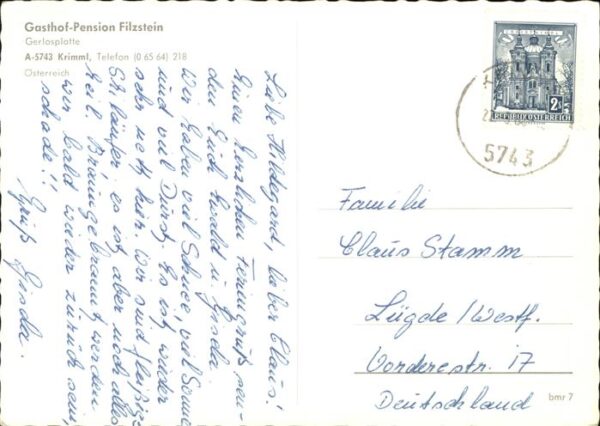 Gasthof-Pension Filzstein
Gerlosplatte
A-5743 Krimml, Telefon (0 65 64) 218
Österreich
Liebe Hildegard, lieber Claus!
Einen herzlichen Feriengruß sen-
den Euch Ewald u. Gisela
Wir haben viel Schnee, viel Sonne
und viel Durst. Es ist wieder
sehr nett hier. Wir sind fleißige
Ski läufer. es ist aber noch alles
heil. Braungebrannt werden
wir bald wieder zurück sein,
schade!!
Gruß Gisela.
2
REPUBLIK ÖSTERREICH
5743
Familie
Claus Stamm
Lügde / Westf.
Vorderestr. 17
Deutschland
bmr 7